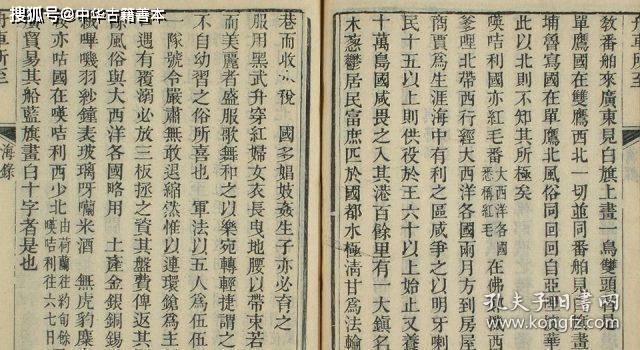 搜狐号@中华古籍善本
車所至
敎番舶來廣東見白旗上畫一鳥雙頭者是
單鷹國在雙鷹西北一切並同番舶見旗畫
埔魯寫國在單鷹北風俗同回回自亞哩華
此以北則不知其所極矣
㗲咭利國亦紅毛番大西洋各國悉稱紅毛在佛
爹理北帶西行經大西洋各國兩月方到房屋
商賈爲生涯海中有利之區咸爭之以明呀喇
民十五以上則供役於王六十以上始止又養
十萬島國咸畏之入其港百餘里有一大鎭名
木葱鬱居民富庶匹於國都水極淸甘爲法輪
巷而收稅　國多娼妓姦生子亦必育之
服用黑武升穿紅婦女衣長曳地腰以帶束若
而美麗者盛服歌舞和之以樂宛轉輕捷謂之
不自幼習之俗所喜也　軍法以五人爲伍伍
一隊號令嚴肅無敢退縮然惟以連環鎗爲主
遇有覆溺必放三板拯之資其盤費俾返其
風俗與大西洋各國略用　土產金銀銅錫
嗶嘰羽紗鐘表玻璃呀囒米酒　無虎豹麋
亦咕國在㗲咭利西少北由荷蘭往約旬餘㗲咭利往六七日
貿易其船藍旗畫白十字者是也
海錄
車所至
孔夫子旧书网
kongfz.com